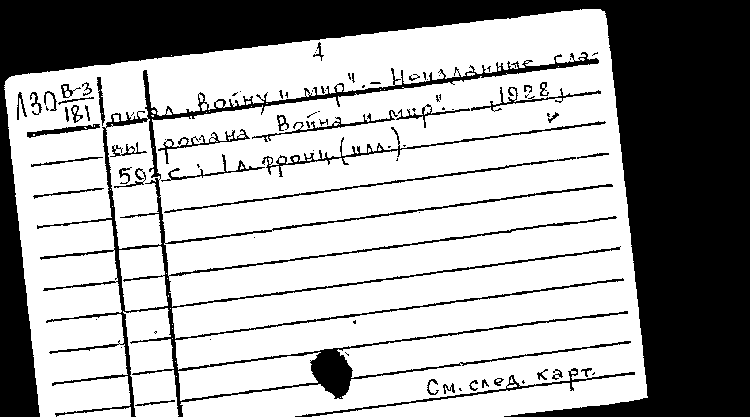 1
Л30 В-3/181
писал „Войну и мир". – Неизданные гла-
вы романа „Война и мир". [1928]
593 с; 1 л. фронт (илл.).
См. след. карт.